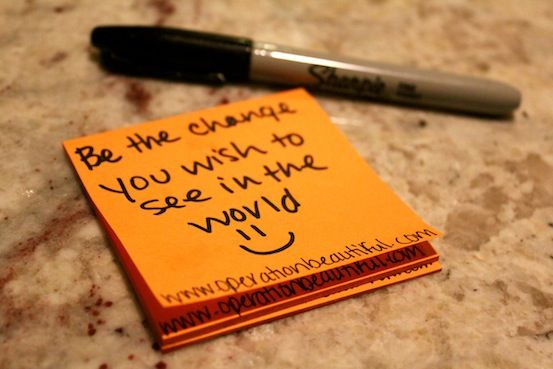 Sharpie
Be the change
you wish to
see in the
world
www.operationbeautiful.com
www.operationbeautiful.com